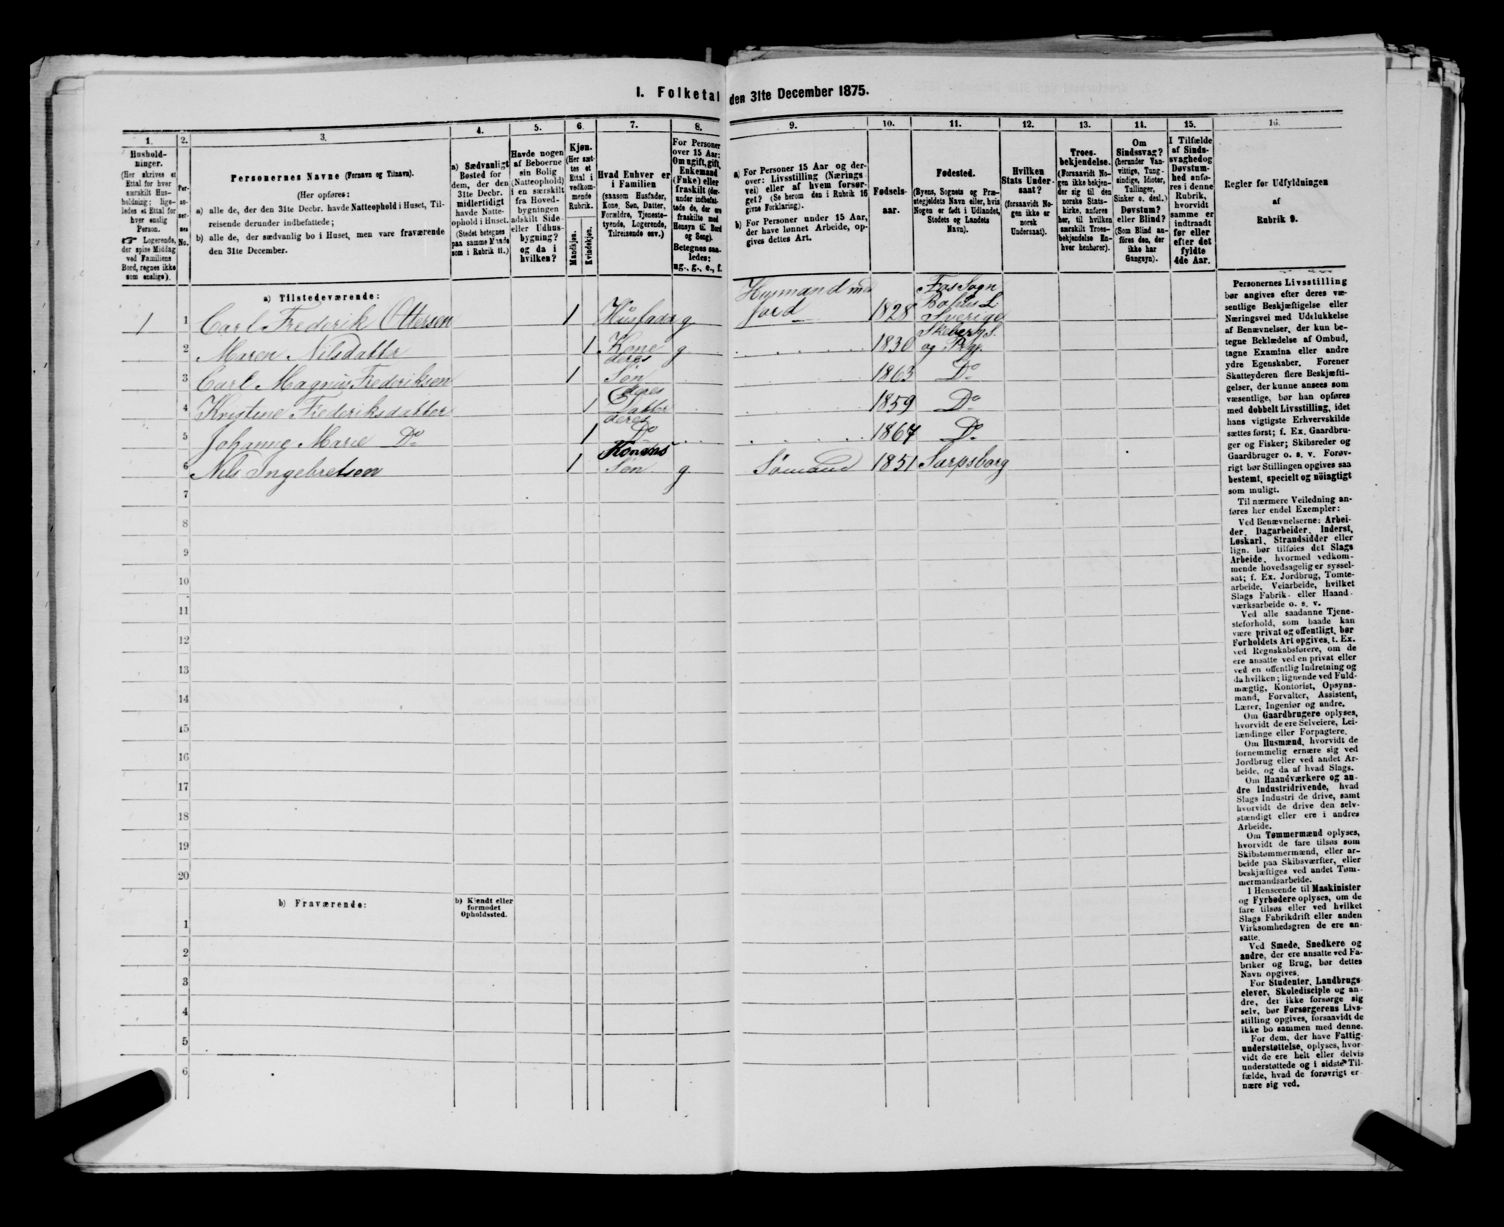 I. Folketal den 31te December 1875.
1.
Hushold-
ninger.
(Her skrives et
Ettal for hver
særskilt Hus-
holdning; lige-
ledes et Ettal for
hver enslig
Person.
☞ Logerende,
der spise Middag
ved Familiens
Bord, regnes ikke
som enslige).
2.
Per-
so-
ner-
nes
No.
3.
Personernes Navne (Fornavn og Tilnavn).
(Her opføres:
a) alle de, der den 31te Decbr. havde Natteophold i Huset, Til-
reisende derunder indbefattede;
b) alle de, der sædvanlig bo i Huset, men vare fraværende
den 31te December.
4.
a) Sædvanligt
Bosted for
dem, der den
31te Decbr.
midlertidigt
havde Natte-
ophold i Huset.
(Stedet betegnes
paa samme Maade
som i Rubrik 11.)
5.
Havde nogen
af Beboerne
sin Bolig
(Natteophold)
i en særskilt
fra Hoved-
bygningen
adskilt Side-
eller Udhus-
bygning?
og da i
hvilken?
6.
Kjøn.
(Her sæt-
tes et
Ettal i
vedkom-
mende
Rubrik.
Mandkjøn.
Kvindekjøn.
7.
Hvad Enhver er
i Familien
(saasom Husfader,
Kone, Søn, Datter,
Forældre, Tjeneste-
tyende, Logerende,
Tilreisende osv.)
8.
For Personer
over 15 Aar:
Om ugift, gift,
Enkemand
(Enke) eller
fraskilt (der-
under indbefat-
tede de, der ere
fraskilte med
Hensyn til Bord
og Seng).
Betegnes saa-
ledes:
ug., g., e., f.
9.
a) For Personer 15 Aar og der-
over: Livsstilling (Nærings-
vei) eller af hvem forsør-
get? (Se herom den i Rubrik 16
givne Forklaring).
b) For Personer under 15 Aar,
der have lønnet Arbeide, op-
gives dettes Art.
10.
Fødsels-
aar.
11.
Fødested.
(Byens, Sognets og Præ-
stegjeldets Navn eller, hvis
Nogen er født i Udlandet,
Stedets og Landets
Navn).
12.
Hvilken
Stats Under-
saat?
(forsaavidt No-
gen ikke er
norsk
Undersaat).
13.
Troes-
bekjendelse.
(Forsaavidt No-
gen ikke bekjen-
der sig til den
norske Stats-
kirke, anføres
her, til hvilken
særskilt Troes-
bekjendelse En-
hver henhører).
14.
Om
Sindssvag?
(herunder Van-
vittige, Tung-
sindige, Idioter,
Tullinger,
Sinker o. desl.)
Døvstum?
eller Blind?
(Som Blind an-
føres den, der
ikke har
Gangsyn).
15.
I Tilfælde
af Sinds-
svaghed og
Døvstum-
hed anfø-
res i denne
Rubrik,
hvorvidt
samme er
indtraadt
før eller
efter det
fyldte
4de Aar.
16.
Regler for Udfyldningen
af
Rubrik 9.
a) Tilstedeværende:
1 1 Carl Frederik Ottersen 1 Husfader g Husmand med Jord 1828 Fos Sogn Bahus L Sverige
2 Maren Nilsdatter 1 Kone g 1830 Skiberg S. og Pgj.
3 Carl Magnus Frederiksen 1 deres Søn 1863 Do
4 Kristine Frederiksdatter 1 deres Datter 1859 Do
5 Johanne Marie Do 1 deres Do 1867 Do
6 Nils Ingebretsen 1 Konens Søn g Sømand 1851 Sarpsborg
7
8
9
10
11
12
13
14
15
16
17
18
19
20
b) Fraværende:
b) Kjendt eller
formodet
Opholdssted.
1
2
3
4
5
6
Personernes Livsstilling
bør angives efter deres væ-
sentlige Beskjæftigelse eller
Næringsvei med Udelukkelse
af Benævnelser, der kun be-
tegne Beklædelse af Ombud,
tagne Examina eller andre
ydre Egenskaber. Forener
Skatteyderen flere Beskjæfti-
gelser, der kunne ansees som
væsentlige, bør han opføres
med dobbelt Livsstilling, idet
hans vigtigste Erhvervskilde
sættes først; f. Ex. Gaardbru-
ger og Fisker; Skibsreder og
Gaardbruger o. s. v. Forøv-
rigt bør Stillingen opgives saa
bestemt, specielt og nøiagtigt
som muligt.
Til nærmere Veiledning an-
føres her endel Exempler:
Ved Benævnelserne: Arbei-
der, Dagarbeider, Inderst,
Løskarl, Strandsidder eller
lign. bør tilføies det Slags
Arbeide, hvormed vedkom-
mende hovedsagelig er syssel-
sat; f. Ex. Jordbrug, Tomte-
arbeide, Veiarbeide, hvilket
Slags Fabrik- eller Haand-
værksarbeide o. s. v.
Ved alle saadanne Tjene-
steforhold, som baade kan
være privat og offentligt, bør
Forholdets Art opgives, t. Ex.
ved Regnskabsførere, om de
ere ansatte ved en privat eller
ved en offentlig Indretning og
da hvilken; lignende ved Fuld-
mægtig, Kontorist, Opsyns-
mand, Forvalter, Assistent,
Lærer, Ingeniør og andre.
Om Gaardbrugere oplyses,
hvorvidt de ere Selveiere, Lei-
lændinge eller Forpagtere.
Om Husmænd, hvorvidt de
fornemmelig ernære sig ved
Jordbrug eller ved andet Ar-
beide, og da af hvad Slags.
Om Haandværkere og an-
dre Industridrivende, hvad
Slags Industri de drive, samt
hvorvidt de drive den selv-
stændigt eller ere i andres
Arbeide.
Om Tømmermænd oplyses,
hvorvidt de fare tilsøs som
Skibstømmermænd, eller ar-
beide paa Skibsværfter, eller
beskjæftiges ved andet Tøm-
mermandsarbeide.
I Henseende til Maskinister
og Fyrbødere oplyses, om de
fare tilsøs eller ved hvilket
Slags Fabrikdrift eller anden
Virksomhedsgren de ere an-
satte.
Ved Smede, Snedkere og
andre, der ere ansatte ved Fa-
briker og Brug, bør dettes
Navn opgives.
For Studenter, Landbrugs-
elever, Skoledisciple og an-
dre, der ikke forsørge sig
selv, bør Forsørgerens Livs-
stilling opgives, forsaavidt de
ikke bo sammen med denne.
For dem, der have Fattig-
understøttelse, oplyses, hvor-
vidt de ere helt eller delvis
understøttede og i sidste Til-
fælde, hvad de forøvrigt er-
nære sig ved.